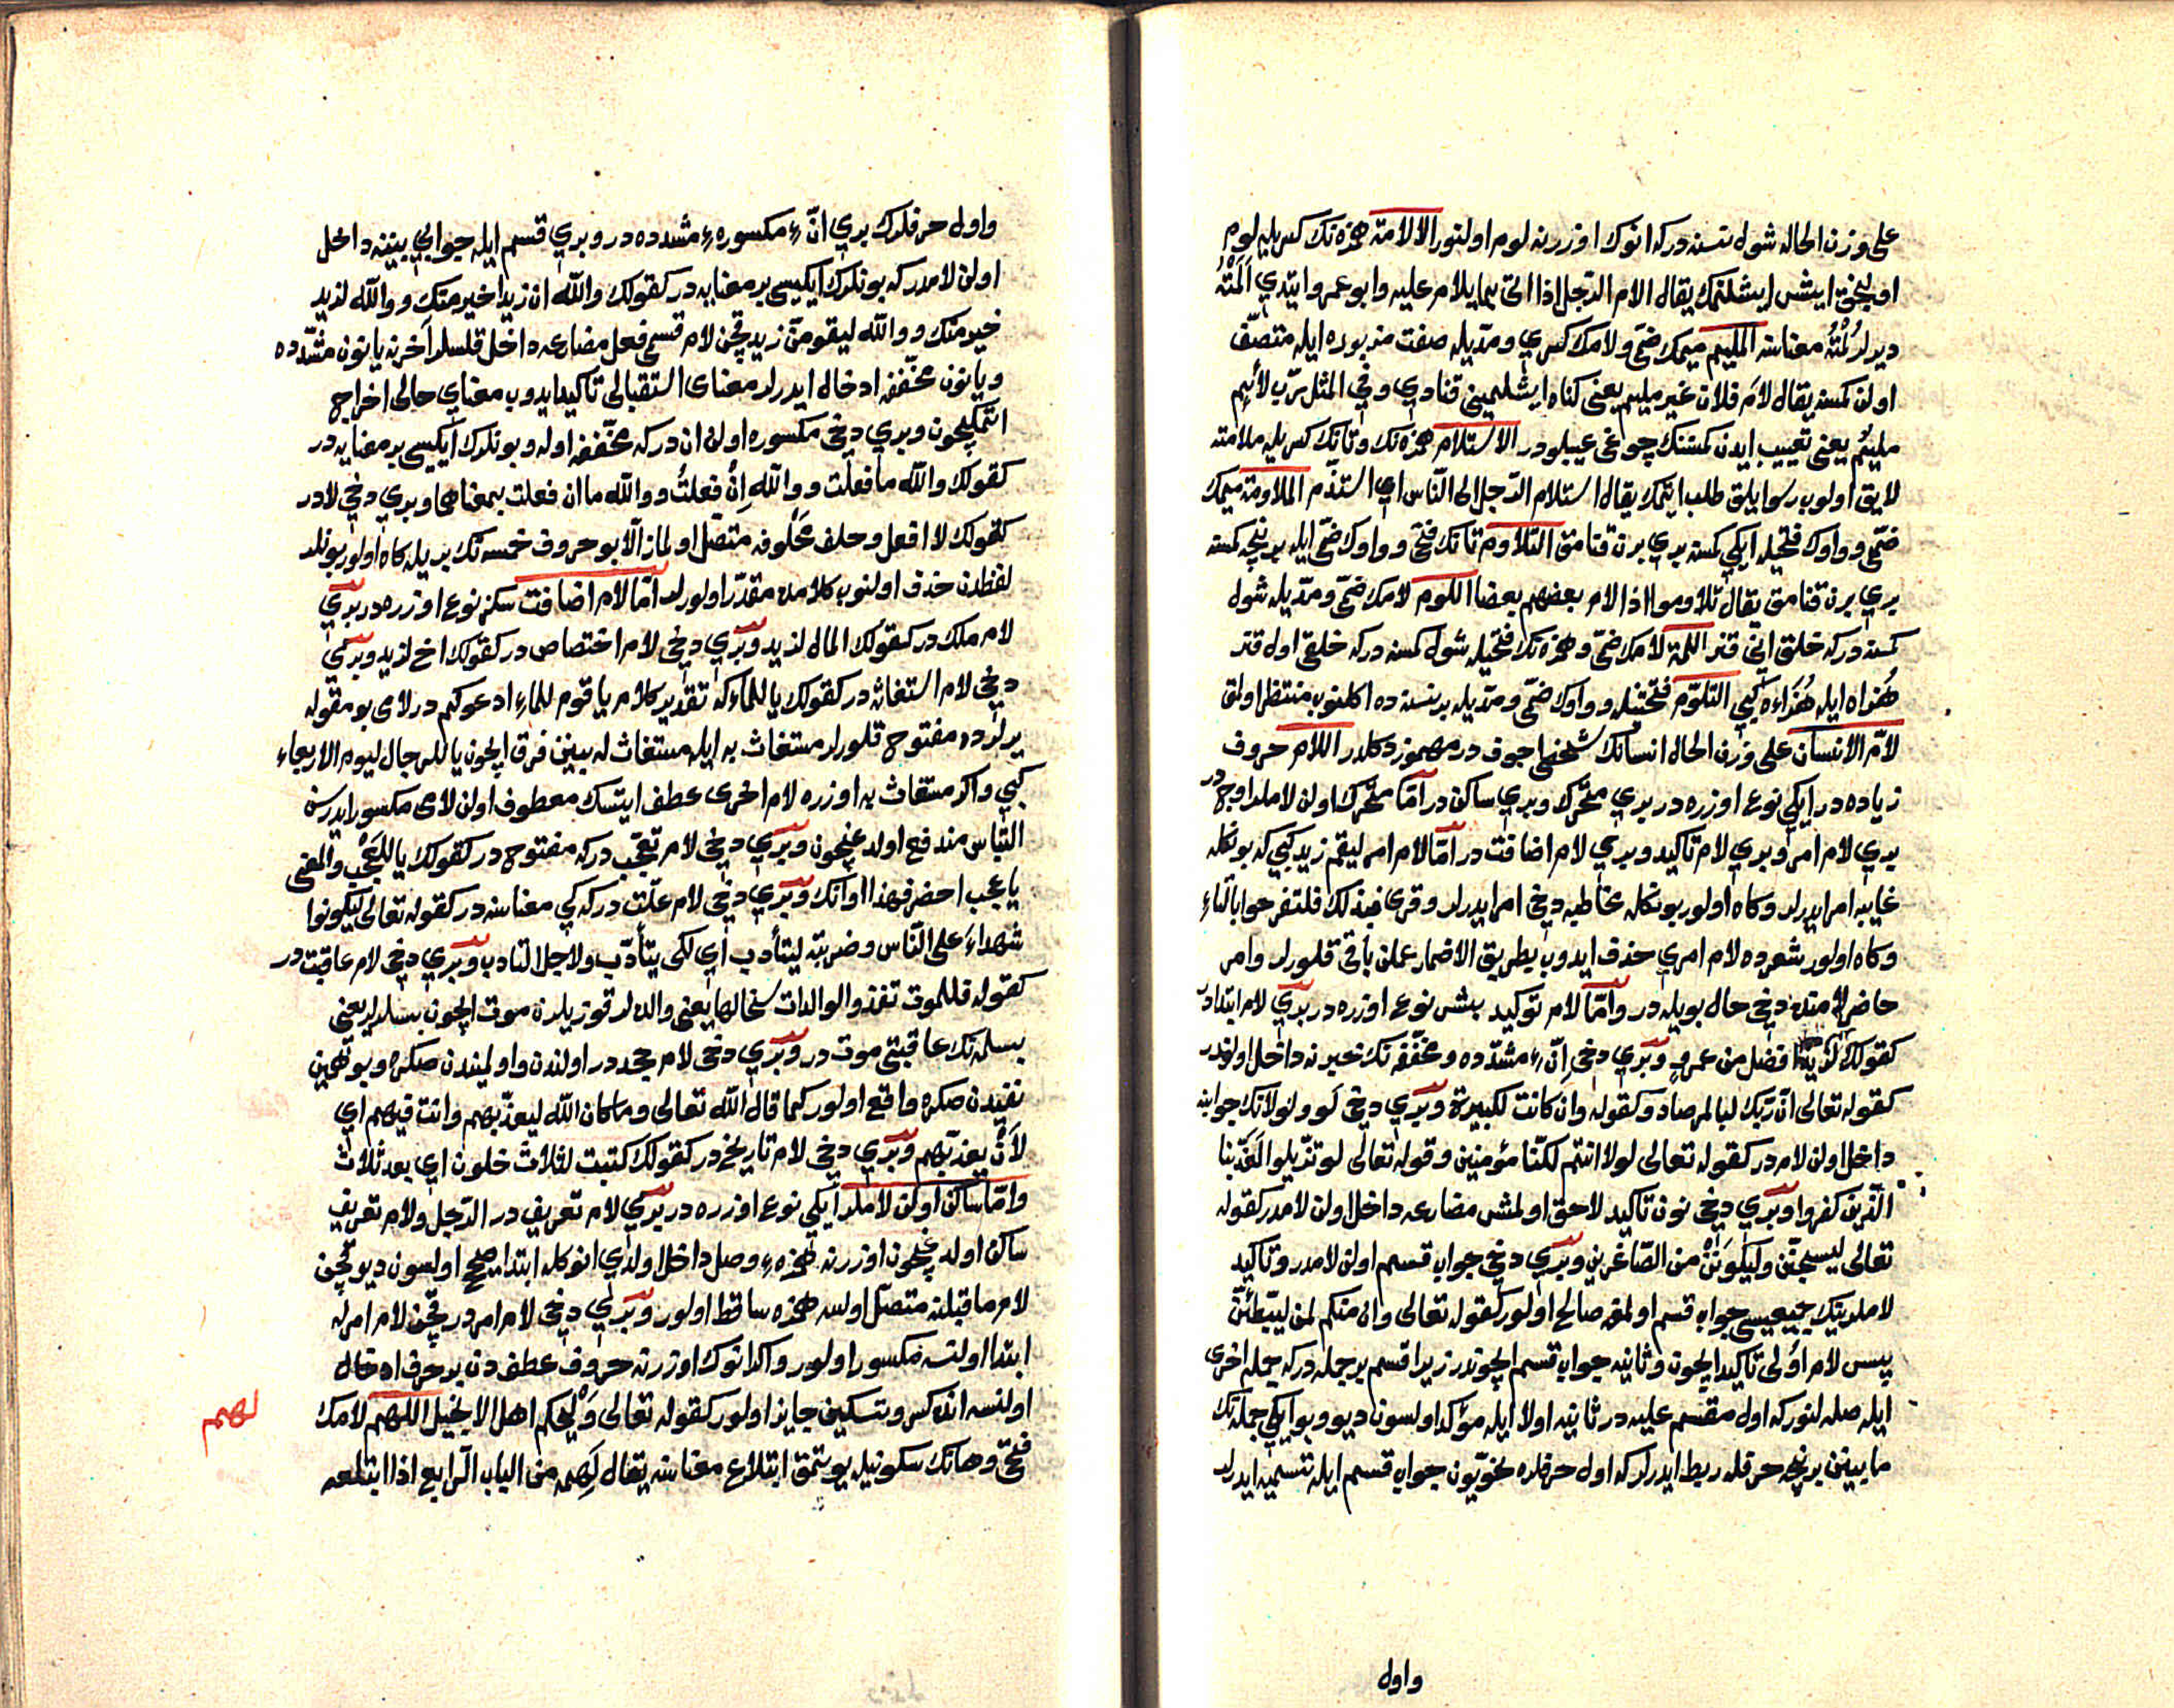 علی وزن الحاله شول نسنه درکه انوک اوزرنه لوم اولنور الالامة همزه نک کسریله لوم
اولنجق ایش ایشلتمک یقال الام الرجل اذا اتی بما یلام علیه وابو عمرو ایتدی اَلَمْتُهُ
دیرلر لُمْتُهُ معناسنه الملیم میمک ضمی ولامک کسری ومدیله صفت مزبوره ایله متصف
اولن کمسنه یقال لامَ فلان غیر ملیم یعنی کناه ایشلیمینی قنادی وفی المثل رب لائم
ملیم یعنی تعییب ایدن کمسنک چوغی عیبلودر الاستلام همزه نک وتانک کسریله ملامته
لایق اولوب رسوایلق طلب ایتمک یقال استلام الرجل الی الناس ای استذم الملاومة میمک
ضمی وواوک فتحیله ایکی کمسنه بری برن قنامق التلاوم تانک فتحی وواوک ضمی ایله بر نیچه کمسنه
بری برن قنامق یقال تلاوموا اذا لام بعضهم بعضا اللوم لامک ضمی ومدیله شول
کمسنه درکه خلق انی قنر اللمة لامک ضمی وهمزه نک فتحیله شول کمسنه درکه خلقی اول قنر
هُزاه ایله هُزَاءه کبی التلوّم فتحتینله وواوک ضمی ومدیله بر نسنه ده اکلنوب منتظر اولمق
لام الانسان علی وزن الحال انسانک شخصی اجوف در مهموز دکلدر اللام حروف
زیاده در ایکی نوع اوزره در بری متحرک وبری ساکن در اما متحرک اولن لاملر اوچ در
بری لام امر وبری لام تاکید وبری لام اضافت در اما لام امر لیقم زید کبی که بونکله
غایبه امر ایدرلر وکاه اولور بونکله مخاطبه دخی امر ایدرلر وقری فبذلک فلتفرحوا بالتاء
وکاه اولور شعرده لام امری حذف ایدوب بطریق الاضمار عملن باقی قلورلر وامر
حاضر لامنده دخی حال بویله در واما لام توکید بش نوع اوزره در بری لام ابتدادر
کقولک لزید افضل من عمرو وبری دخی اِنّ مشدده ومخففه نک خبرنه داخل اولندر
کقوله تعالی ان ربک لبالمرصاد وکقوله وان کانت لکبیرة وبری دخی لَو ولولانک جوابنه
داخل اولن لامدر کقوله تعالی لولا انتم لکنا مؤمنین وقوله تعالی لو تزیلوا لعذبنا
الذین کفروا وبری دخی نون تاکید لاحق اولمش مضارعه داخل اولن لامدر کقوله
تعالی لیسجنن ولیکونن من الصاغرین وبری دخی جواب قسم اولن لامدر وتاکید
لاملرینک جمیعیسی جواب قسم اولمغه صالح اولور کقوله تعالی وان منکم لمن لیبطئنّ
پس لام اولی تاکید ایچون وثانیه جواب قسم ایچوندر زیرا قسم بر جمله درکه جمله اخری
ایله صله لنور که اول مقسم علیه در ثانیه اولا ایله مؤکد اولسون دیو وبو ایکی جمله نک
مابینن بر نیچه حرفله ربط ایدرلر که اول حرفلره نحویون جواب قسم ایله تسمیه ایدرلر
واول
واول حرفلرک بری انّ مکسوره مشدده در وبری قسم ایله جوابی بیننه داخل
اولن لامدر که بونلرک ایکیسی بر معنایه در کقولک والله ان زیدا خیر منک ووالله لزید
خیر منک ووالله لیقومنّ زید قچن لام قسمی فعل مضارعه داخل قلسلر آخرنه یا نون مشدده
ویا نون مخففه ادخال ایدرلر معنای استقبالی تاکید ایدوب معنای حالی اخراج
اتمکیچون وبری دخی مکسوره اولن ان درکه مخففه اوله وبونلرک ایکیسی بر معنایه در
کقولک والله ما فعلت ووالله اِنْ فعلتُ ووالله ما ان فعلت بمعناهما وبری دخی لادر
کقولک لا افعل وحلف محلوفه متصل اولماز الا بو حروف خمسه نک بریله کاه اولور بونلر
لفظدن حذف اولنوب کلامده مقدر اولورلر اما لام اضافت سکز نوع اوزره در بری
لام ملک در کقولک المال لزید وبری دخی لام اختصاص در کقولک اخ لزید وبری
دخی لام استغاثه در کقولک یا للماء که تقدیر کلام یا قوم للماء ادعوکم در لامی بو مقوله
یرلرده مفتوح قلورلر مستغاث به ایله مستغاث له بینن فرق ایچون یا للرجال لیوم الاربعاء
کبی واکر مستغاث به اوزره لام اخری عطف ایتسک معطوف اولن لامی مکسور ایدرسن
التباس مندفع اولدغیچون وبری دخی لام تعجب درکه مفتوح در کقولک یا للعَجَب والمعنی
یا عجب احضر فهذا اوانک وبری دخی لام علت درکه کی معناسنه در کقوله تعالی لیکونوا
شهداء علی الناس وضربته لیتأدب ای لکی یتأدب ولاجل التادب وبری دخی لام عاقبت در
کقوله فللموت تغذو الوالدات سخالها یعنی والده لر قوزیلرن موت ایچون بسلرلر یعنی
بسلمه نک عاقبتی موت در وبری دخی لام جحددر اولندن واولمیندن صکره وبو همین
نفیدن صکره واقع اولور کما قال الله تعالی وما کان الله لیعذبهم وانت فیهم ای
لاَنْ یعذبهم وبری دخی لام تاریخ در کقولک کتبت لثلاث خلون ای بعد ثلاث
واما ساکن اولن لاملر ایکی نوع اوزره در بری لام تعریف در الرجل ولام تعریف
ساکن اولدغیچون اوزرنه همزه وصل داخل اولدی انوکله ابتدا صحیح اولسون دیو قچن
لام ماقبلنه متصل اولسه همزه ساقط اولور وبری دخی لام امردر قچن لام امرله
ابتدا اولنسه مکسور اولور واکر انوک اوزرنه حروف عطف دن بر حرف ادخال
اولنسه انده کسر وتسکین جایز اولور کقوله تعالی وَلْیحکم اهل الانجیل اللهم لامک
فتحی وهانک سکونیله یوتمق ابتلاع معناسنه یقال لَهِمه من الباب الرابع اذا ابتلعه
لهم